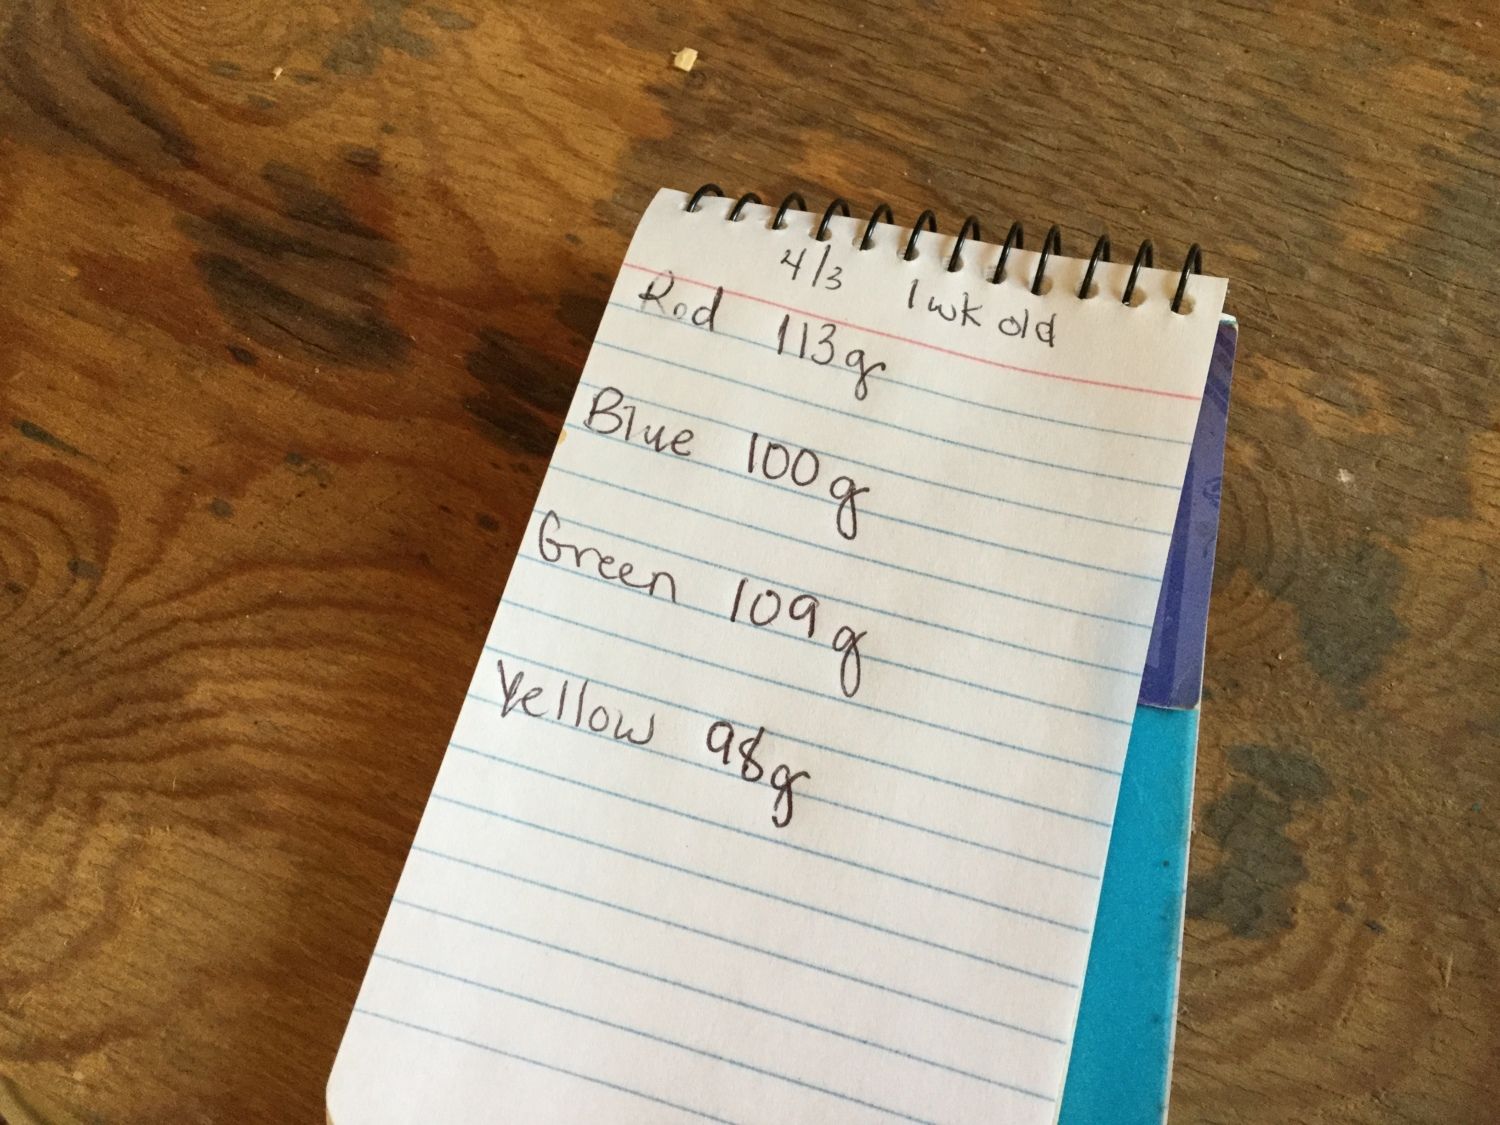 4/3 1 wk old
Red 113g
Blue 100g
Green 109g
Yellow 98g